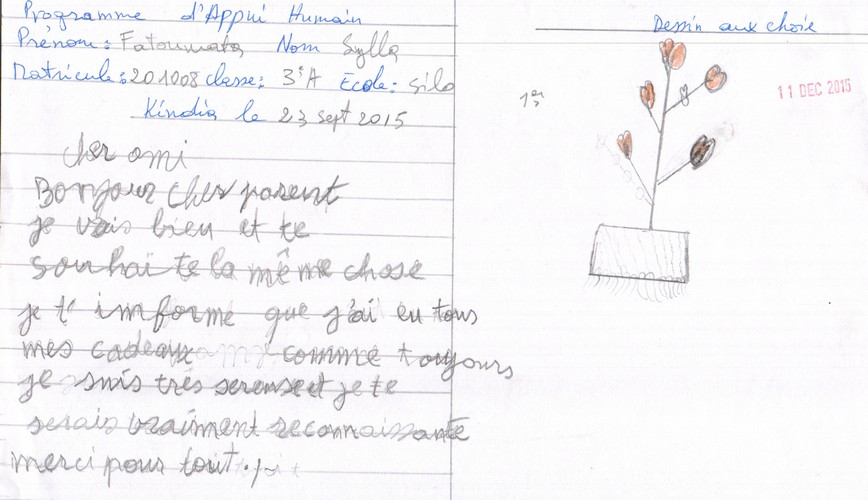 Programme d'Appui Humain
Prénom: Fatoumata Nom Sylla
Matricule: 201008 classe: 3e A Ecole: Sila
Kindia le 23 sept 2015
cher ami
Bonjour cher parent
je vais bien et te
souhaite la même chose
je t'informe que j'ai eu tous
mes cadeaux comme toujours
je suis très sereuse et je te
serais vraiment reconnaissante
merci pour tout.
Dessin aux choie
1er
11 DEC 2015